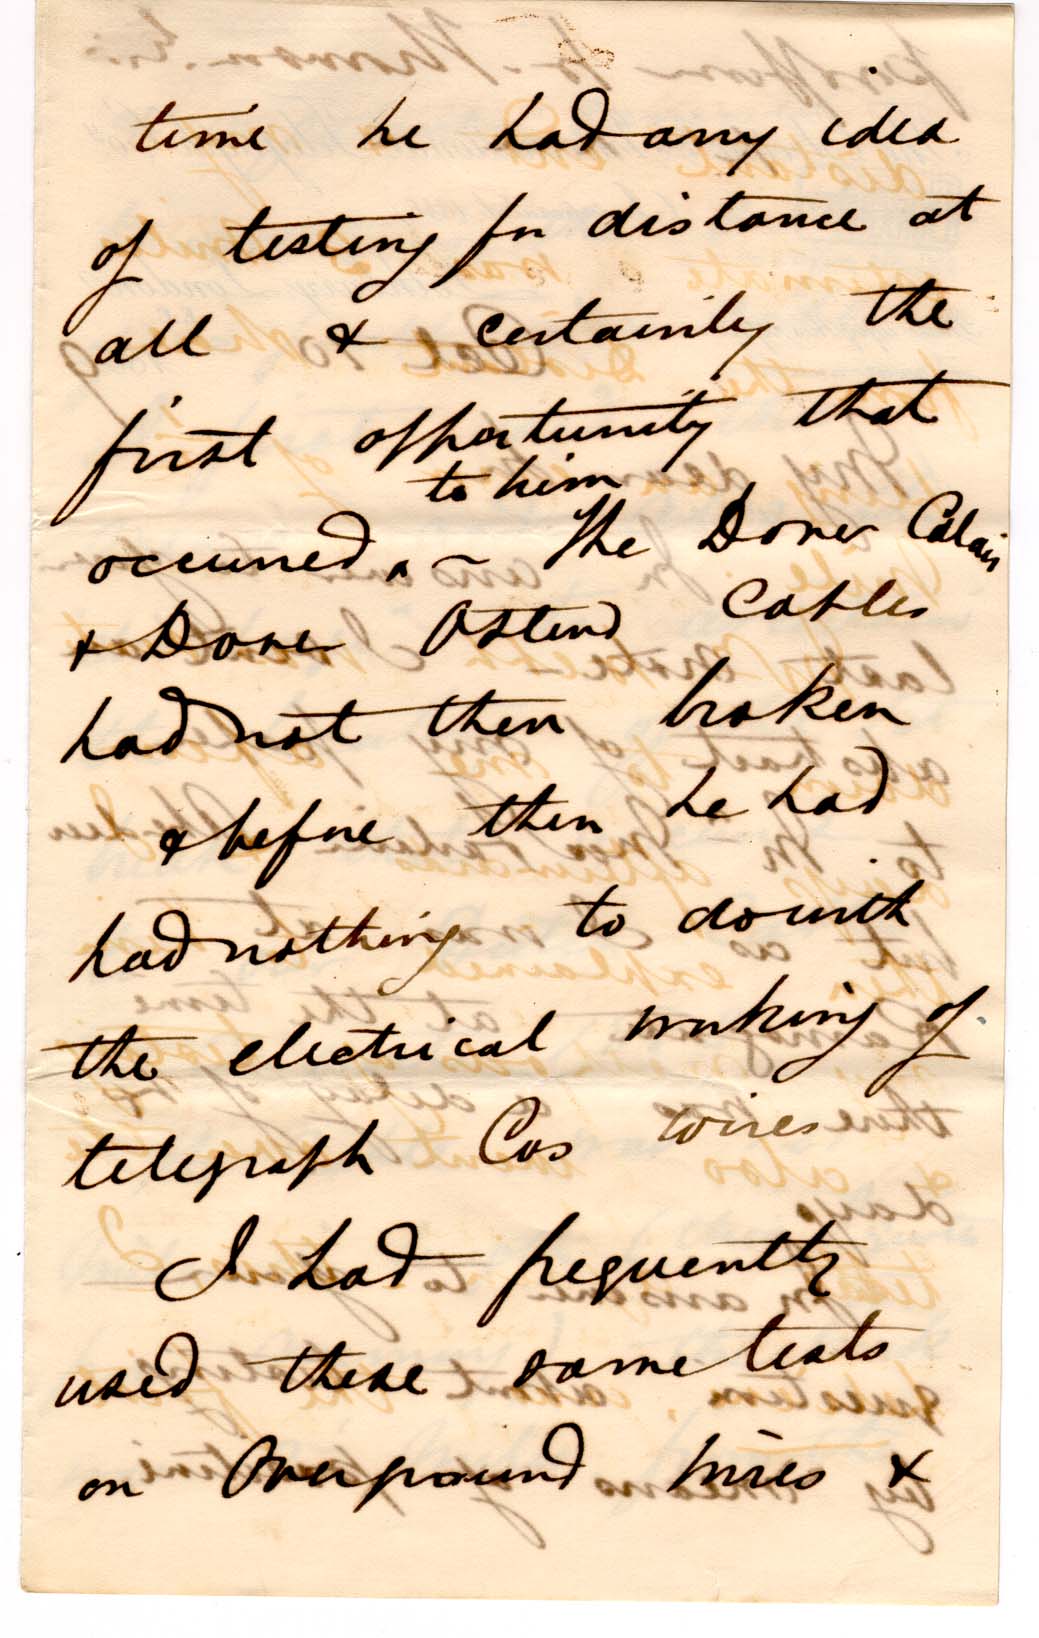 time he had any idea
of testing for distance at
all & certainly the
first opportunity that
to him
occurred ^ - The Dover Calais
& Dover Ostend Cables
had not then broken
& before then he had
had nothing to do with
the electrical working of
telegraph Cos wires
I had frequently
used these same tests
on Overground wires &